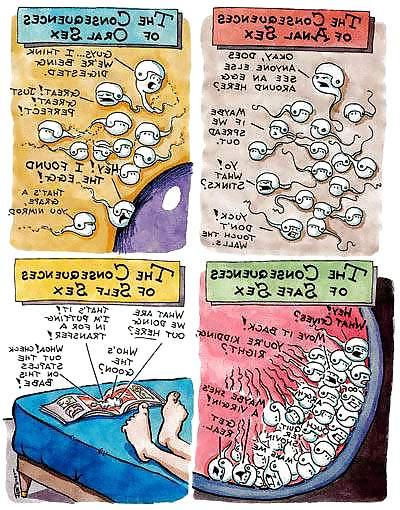 The Consequences
of Anal Sex
Okay, does
anyone else
see an egg
around here?
Maybe
if we
spread
out.
Yo!
What
stinks?
Yuck!
Don't
touch the
walls.
The Consequences
of Oral Sex
Guys... I think
we're being
digested.
Great! Just
great!
Perfect!
Hey! I found
the egg!
That's a
grape,
you nimrod.
The Consequences
of Safe Sex
Hey!
What gives?
Move it back!
You're kidding,
right?
Maybe she's
a virgin!
Get
real...
Quit
shovin'
me,
man!
The Consequences
of Self Sex
What are
we doing
out here?
Who's
the
goon?
That's
it!
I'm putting
in for a
transfer!
Whoa! Check
out the
staples
on this
babe!